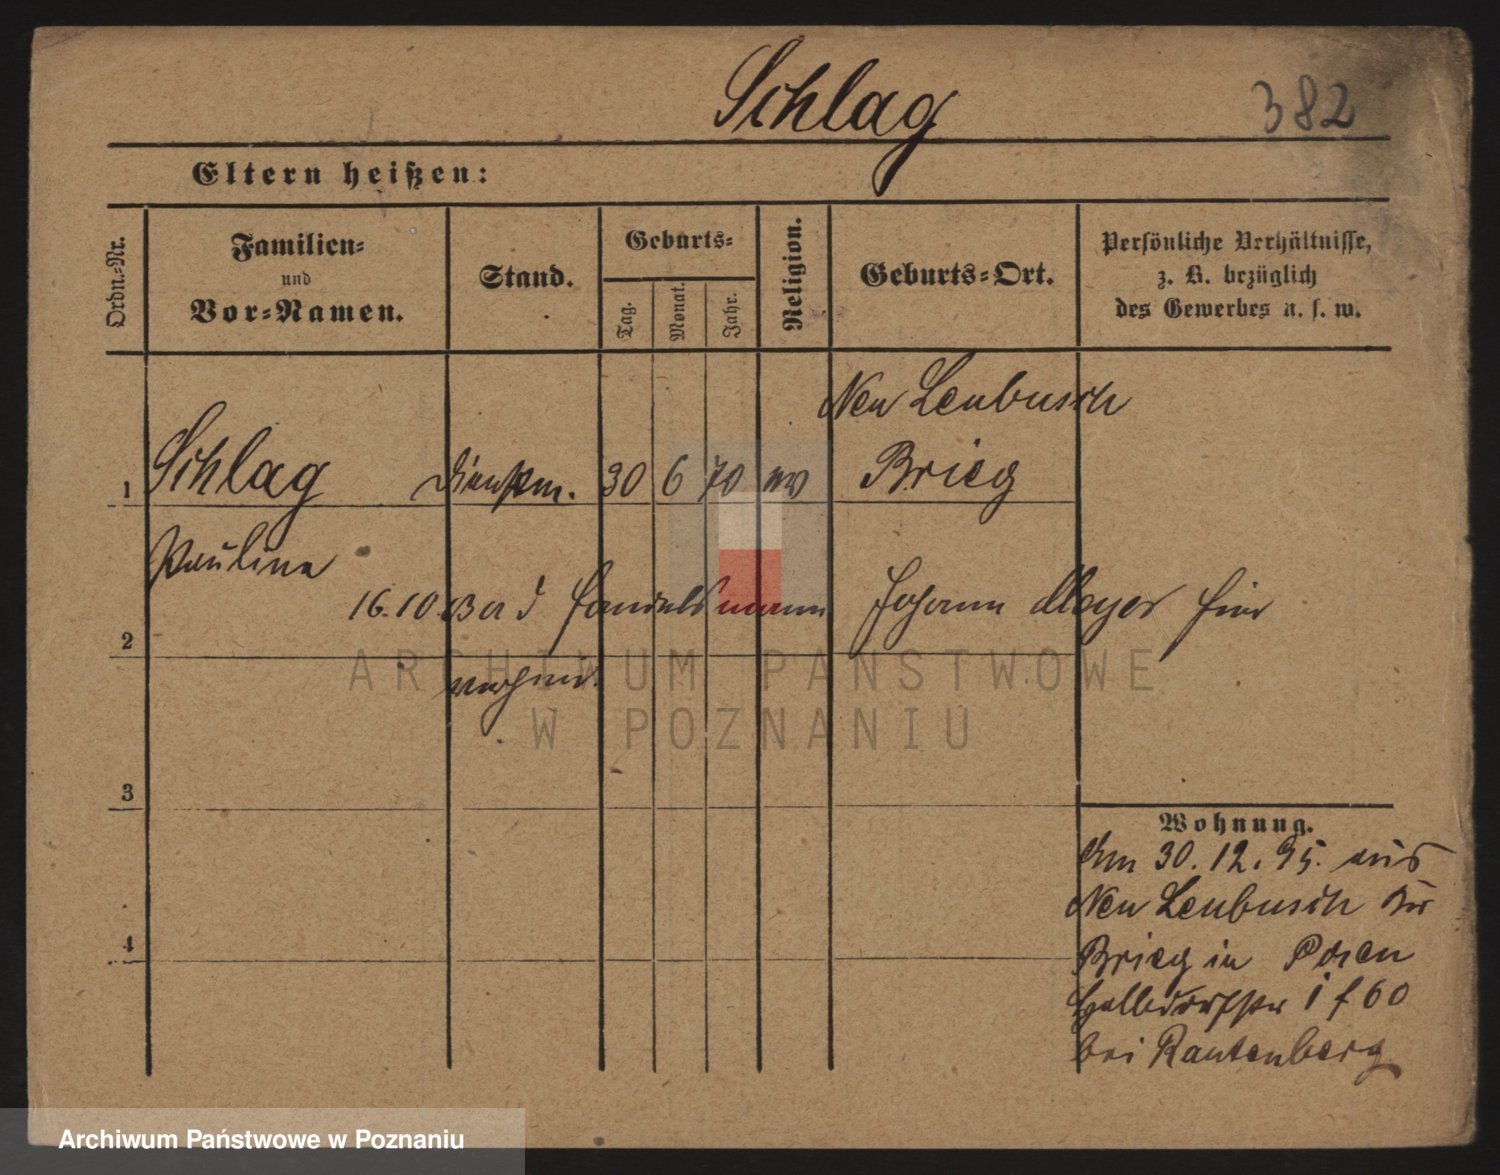 Schlag
382
Eltern heißen:
Ordn.-Nr.
Familien-
und
Vor-Namen.
Stand.
Geburts-
Tag.
Monat.
Jahr.
Religion.
Geburts-Ort.
Persönliche Verhältnisse,
z. B. bezüglich
des Gewerbes u. s. w.
Neu Leubusch
1 Schlag Dienstm. 30 6 70 ev Brieg
Pauline
16.10. d Handelsmann Johann Meyer hier
2
verheir.
ARCHIWUM PAŃSTWOWE
W POZNANIU
3
Wohnung.
Am 30.12.95. aus
Neu Leubusch Kr
4
Brieg in Posen
1 f 60
bei Rautenberg
Archiwum Państwowe w Poznaniu